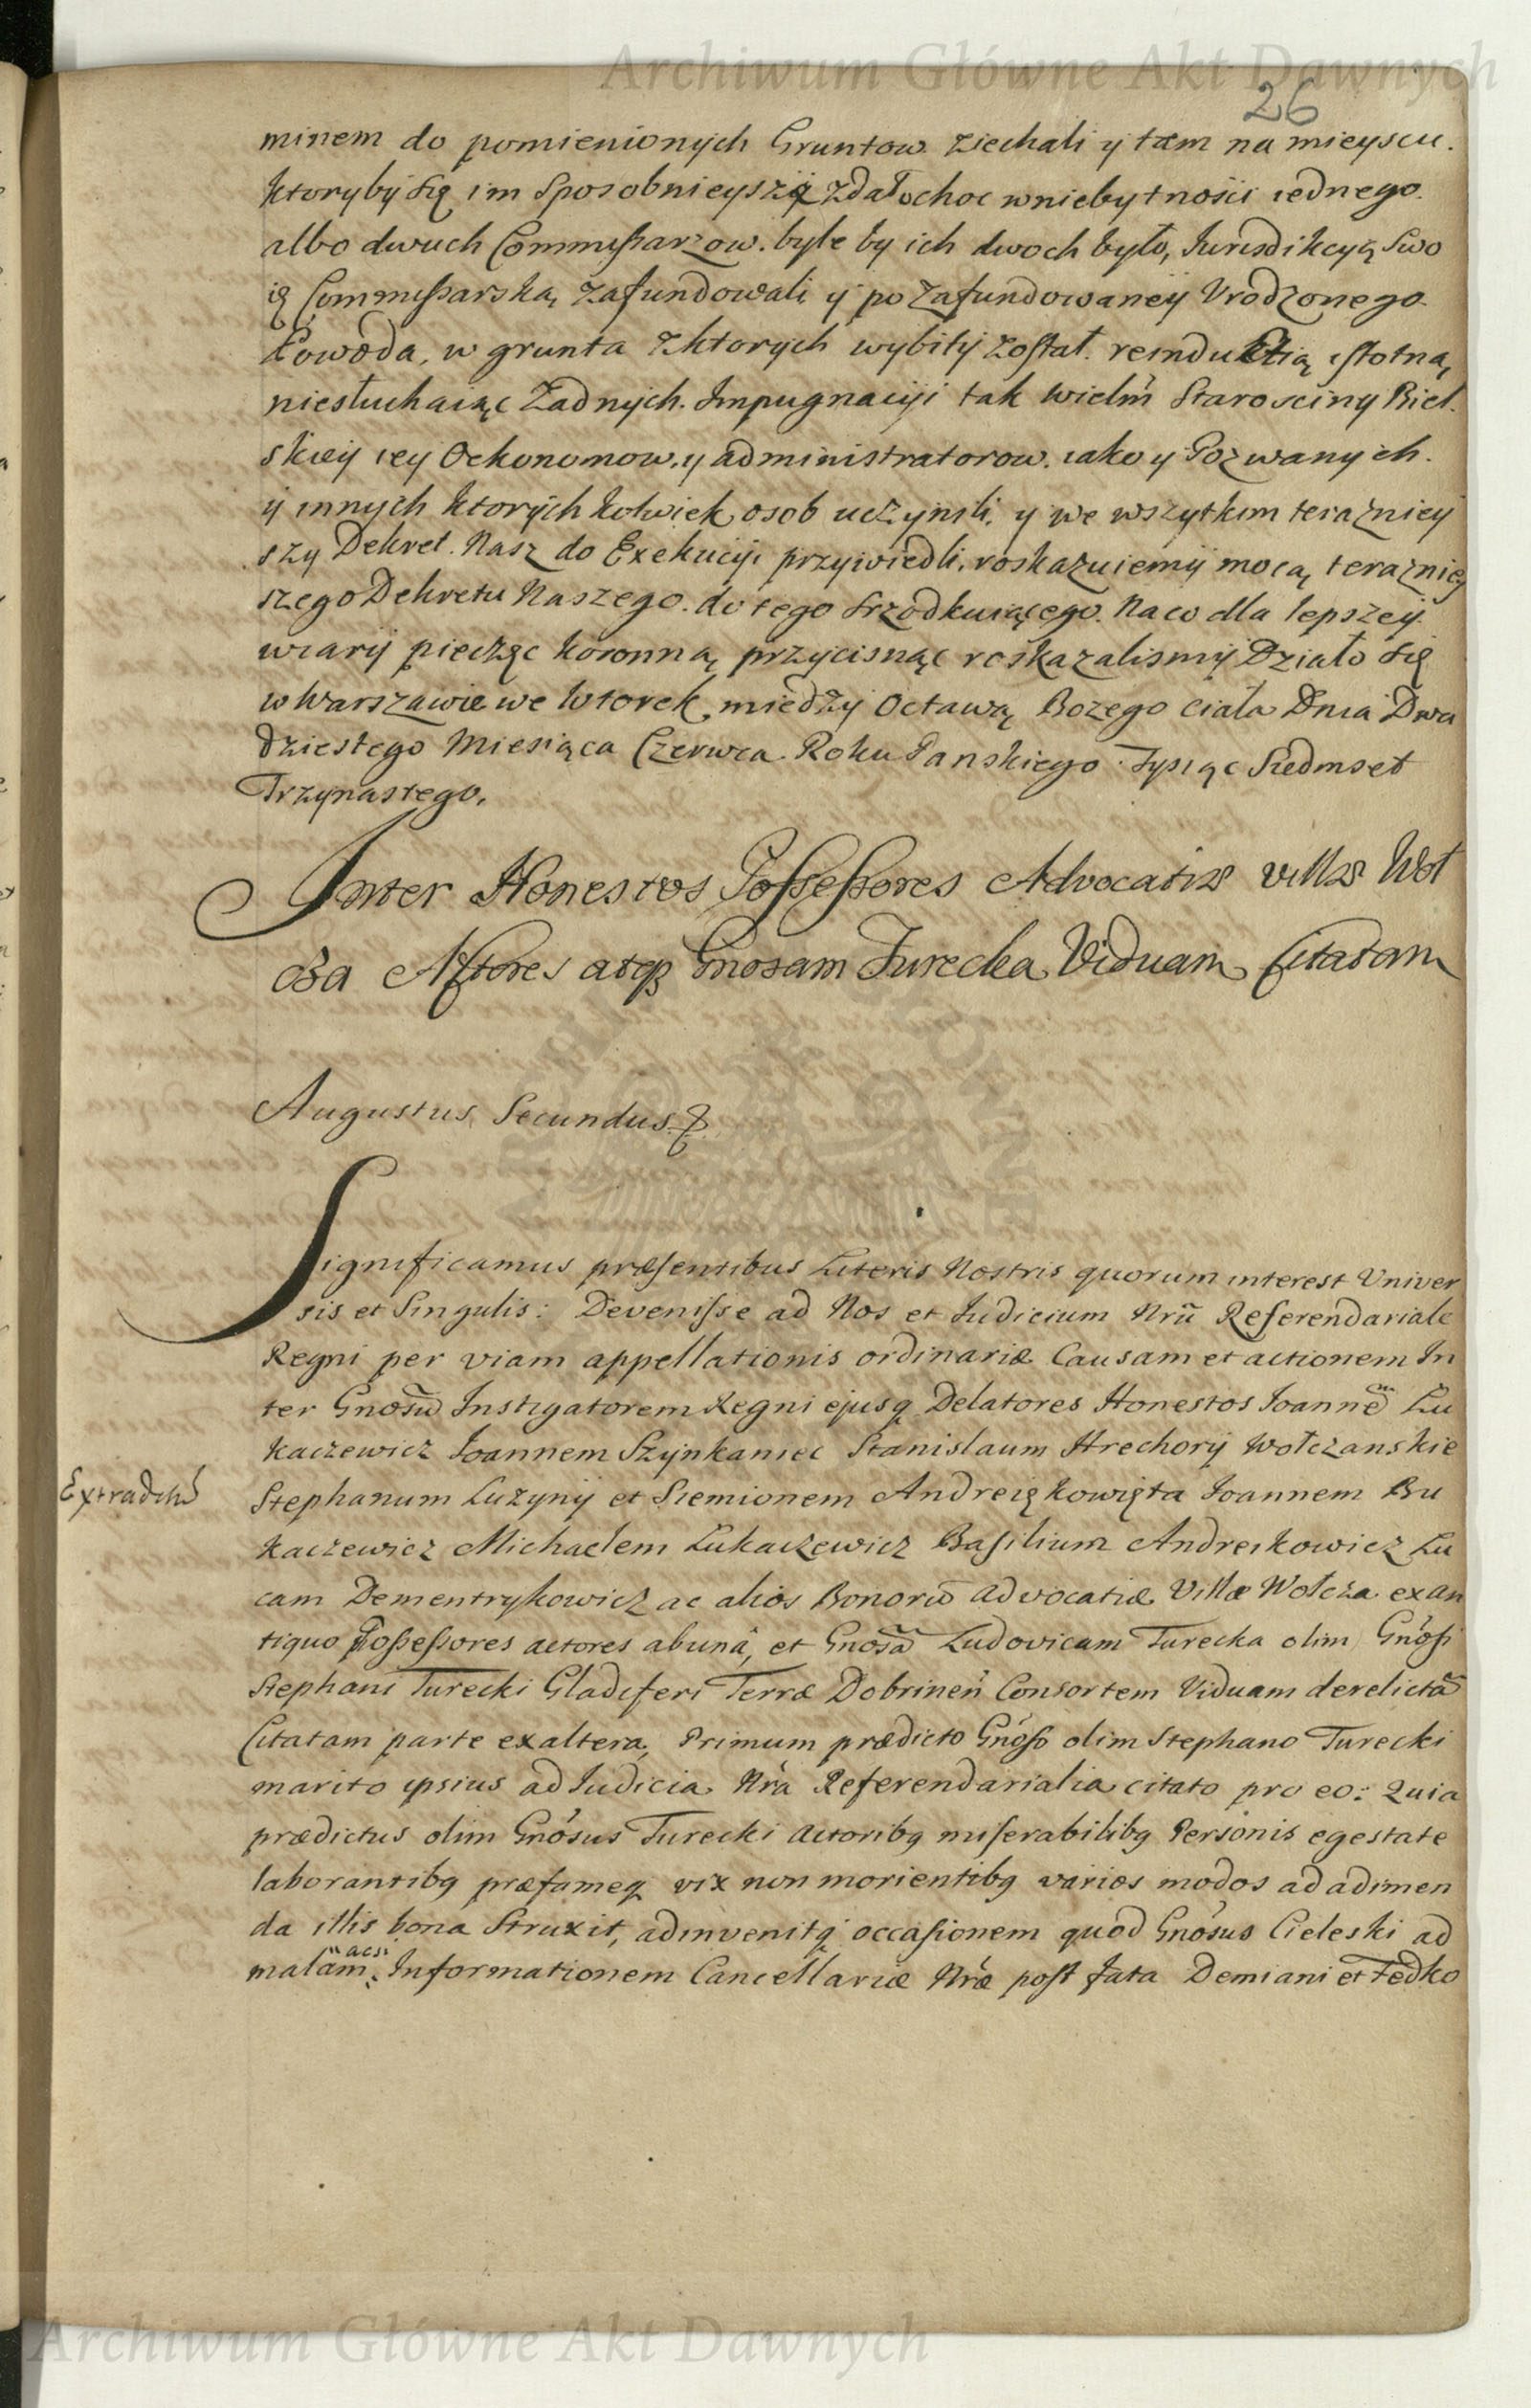 Archiwum Główne Akt Dawnych
26
minem do pomienionych Gruntow ziechali y tam na mieyscu.
ktoryby się im Sposobnieyszÿ zdał choc wniebytności iednego.
albo dwuch Commißarzow. byle by ich dwoch było, Jurisdikcyą Swo
ię Commißarską zafundowali ÿ po zafundowaneÿ Vrodzonego
Powoda, w grunta zktorych wybitÿ został. reinduktią istotną,
niesłuchaiąc Żadnych. Impugnacÿi tak wielm̃ Starosciny Biel.
skieÿ ieÿ Oekonomow, y administratorow. iako y Pozwanych.
ÿ innych ktorych kolwiek osob uczynili, y we wszytkim terazniey
szy Dekret. Nasz do Exekucÿi przywiedli, roskazuiemÿ mocą terazniey
szego Dekretu Naszego. do tego Srzodkuiącego. Na co dla lepszeÿ
wiarÿ pieczęc koronną przycisnąc roskazalismÿ Działo się
w Warszawie we Wtorek miedzÿ Octawą Bozego Ciała Dnia Dwa
dziestego Miesiąca Czerwca Roku Panskiego Tysiąc Siedmset
Trzynastego.
Inter Honestos Possessores Advocatiæ villæ Woł
cza Actores atqꝫ Gnosam Turecka Viduam Citatam
Augustus Secundus &
Significamus præsentibus Literis Nostris quorum interest Univer
sis et Singulis: Devenisse ad Nos et Iudicium Nrũ Referendariale
Regni per viam appellationis ordinariæ Causam et actionem In
ter Gnosũ Instigatorem Regni ejusq Delatores Honestos Ioannẽ Łu
kaczewicz Ioannem Szynkaniec Stanislaum Hrechorÿ Wołczanskie
Extradtũ
Stephanum Luzynÿ et Siemionem Andreiękowięta Ioannem Bu
kaczewicz Michaelem Łukaczewicz Basilium Andreikowicz Lu
cam Dementrykowicz ac alios Bonorũ advocatiæ Villæ Wołcza exan
tiquo Poßeßores actores abunâ, et Gnosã Ludovicam Turecka olim Gnosi
Stephani Turecki Gladiferi Terræ Dobrineñ Consortem Viduam derelictã
Citatam parte exaltera, Primum prædicto Gnoso olim Stephano Turecki
marito ipsius ad Iudicia Nra Referendarialia citato pro eo: Quia
prædictus olim Gnosus Turecki actoribꝗ miserabilibꝗ Personis egestate
laborantibꝗ præfameq vix non morientibꝗ varios modos ad adimen
da illis bona Struxit, adinvenitq occasionem quod Gnosus Cieleski ad
malam Informationem Cancellariæ Nræ post fata Demiani et Fedko
Archiwum Główne Akt Dawnych